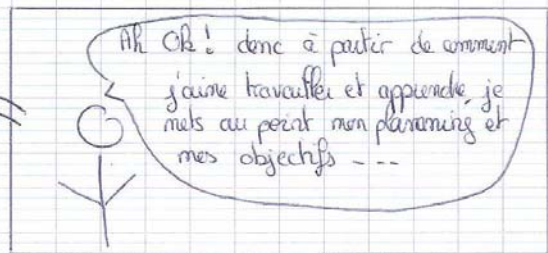 Ah Ok! donc à partir de comment
j'aime travailler et apprendre je
mets au point mon planning et
mes objectifs ---